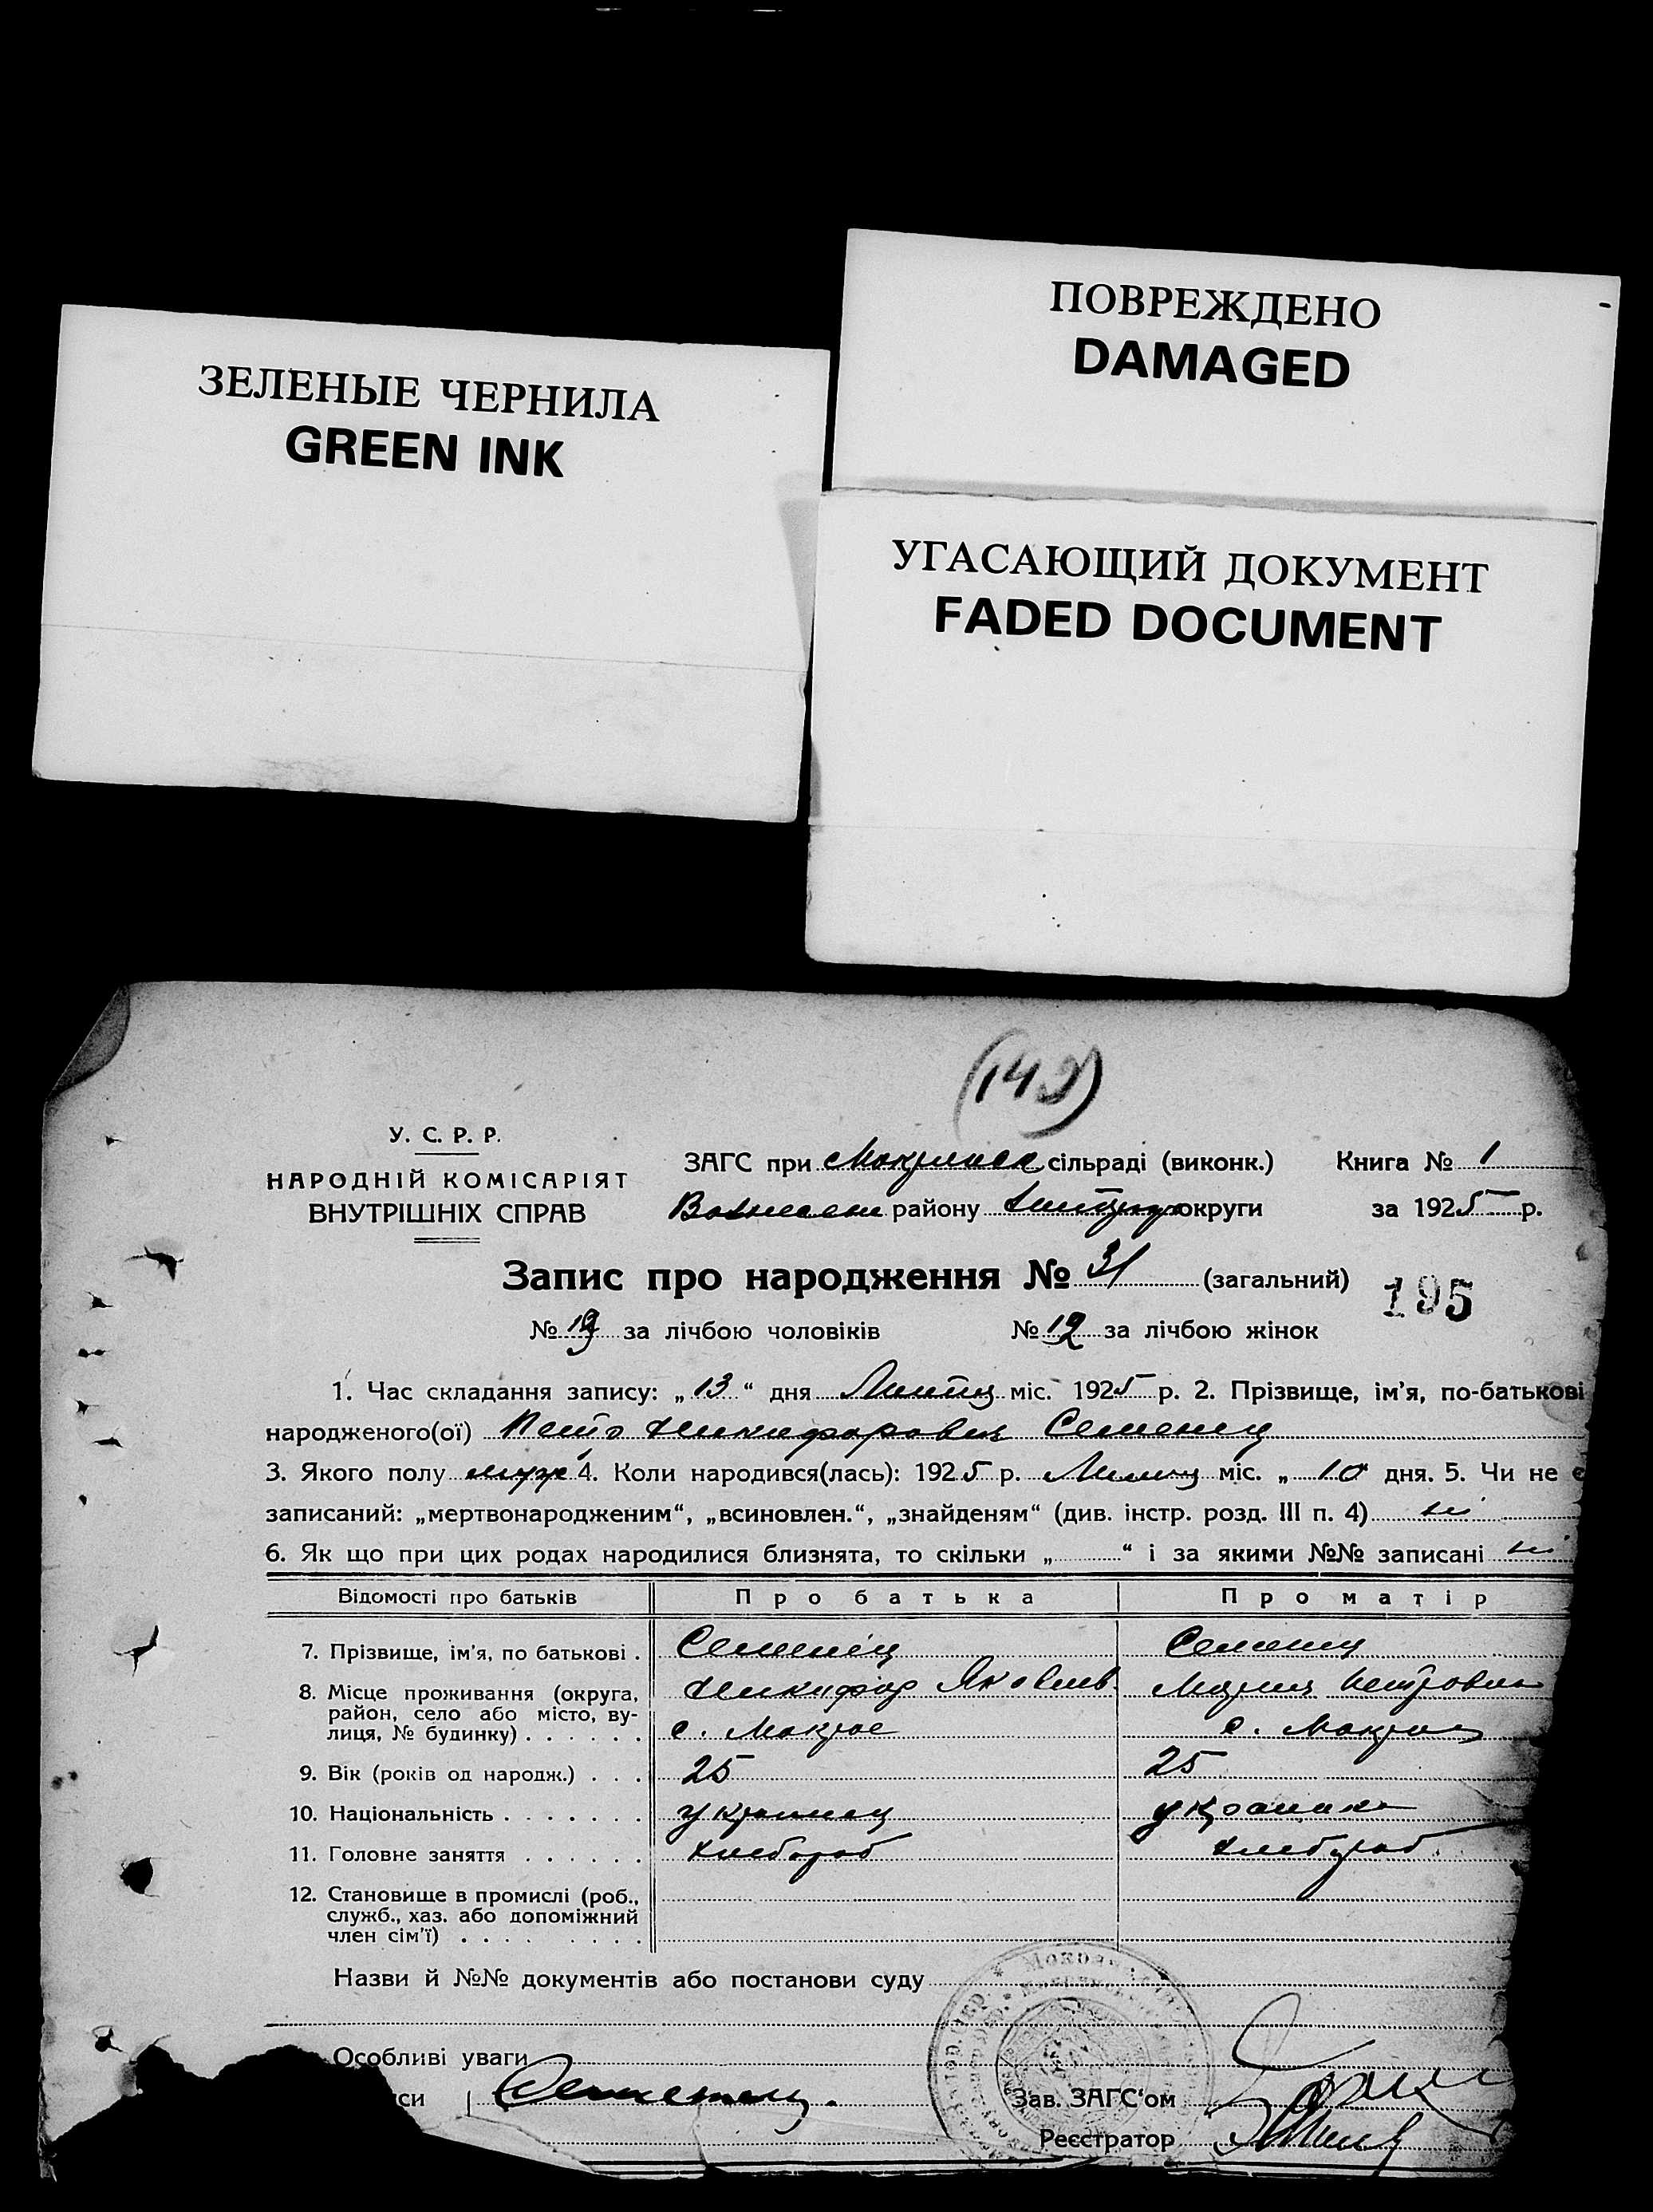 ПОВРЕЖДЕНО
DAMAGED
ЗЕЛЕНЫЕ ЧЕРНИЛА
GREEN INK
УГАСАЮЩИЙ ДОКУМЕНТ
FADED DOCUMENT
У. С. Р. Р.
НАРОДНІЙ КОМІСАРІЯТ
ВНУТРІШНІХ СПРАВ
ЗАГС при сільраді (виконк.) Книга № 1
району округи за 1925 р.
Запис про народження № 31 (загальний) 195
№ за лічбою чоловіків № 12 за лічбою жінок
1. Час складання запису: „13“ дня міс. 1925 р. 2. Прізвище, ім'я, по-батькові
народженого(ої) Никифорович Семенец
3. Якого полу муж 4. Коли народився(лась): 1925 р. міс. „10 дня. 5. Чи не є
записаний: „мертвонародженим“, „всиновлен.“, „знайденям“ (див. інстр. розд. III п. 4) ні
6. Як що при цих родах народилися близнята, то скільки „ “ і за якими №№ записані ні
Відомості про батьків Про батька Про матір
7. Прізвище, ім'я, по батькові . Семенец Семенец
8. Місце проживання (округа, Никифор Яковлев. Мария Петровна
район, село або місто, ву-
лиця, № будинку) . . . . . . с. Мокрое с.
9. Вік (років од народж.) . . . 25 25
10. Національність . . . . . . украинец
11. Головне заняття . . . . . . хлебороб хлебороб
12. Становище в промислі (роб.,
служб., хаз. або допоміжний
член сім'ї) . . . . . . . . .
Назви й №№ документів або постанови суду
Особливі уваги
си Семенец. Зав. ЗАГС‘ом
Реєстратор